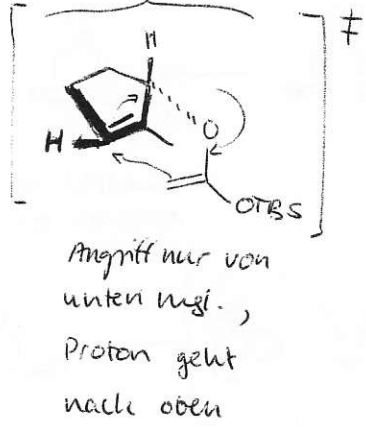 H
‡
O
H
OTBS
Angriff nur von
unten mgl.,
Proton geht
nach oben